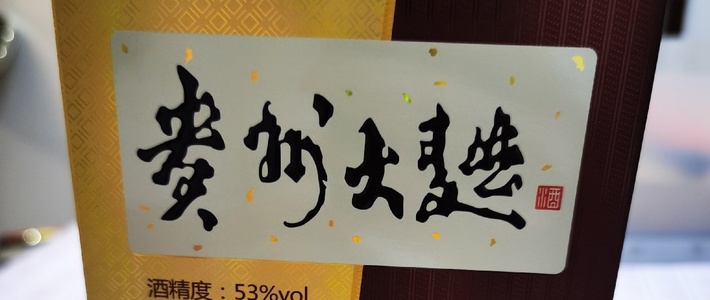 貴州大麯
酒
酒精度：53%vol